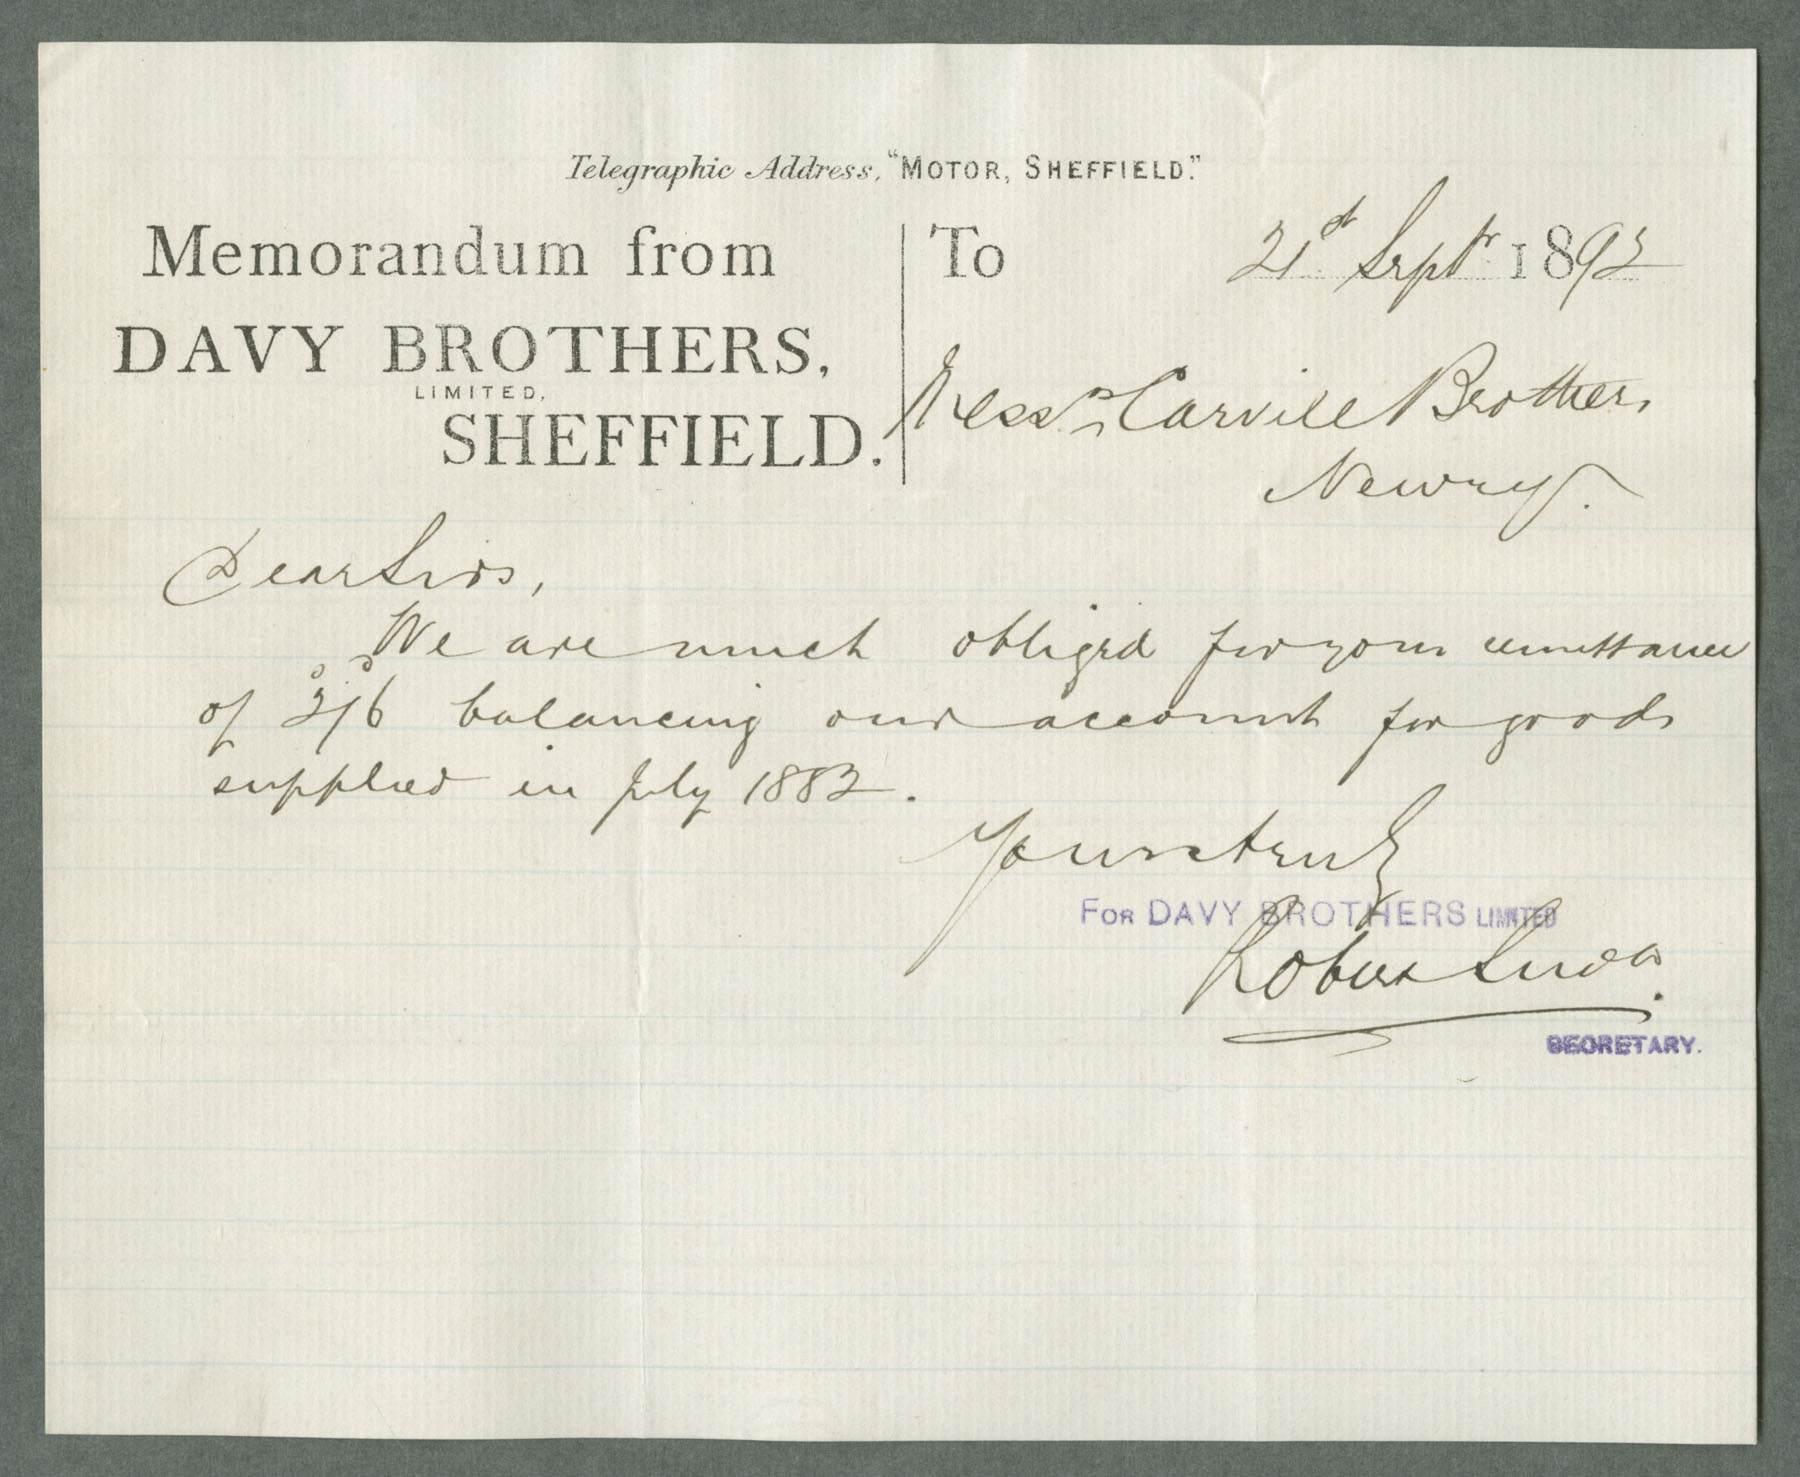 Telegraphic Address, "MOTOR, SHEFFIELD."
Memorandum from
DAVY BROTHERS,
LIMITED,
SHEFFIELD.
To
21st Septr 1892
Messrs Carvill Brothers
Newry.
Dear Sirs,
We are much obliged for your remittance
of 2s/6d balancing our account for goods
supplied in July 1882.
Yours truly
FOR DAVY BROTHERS LIMITED
Robert
SECRETARY.